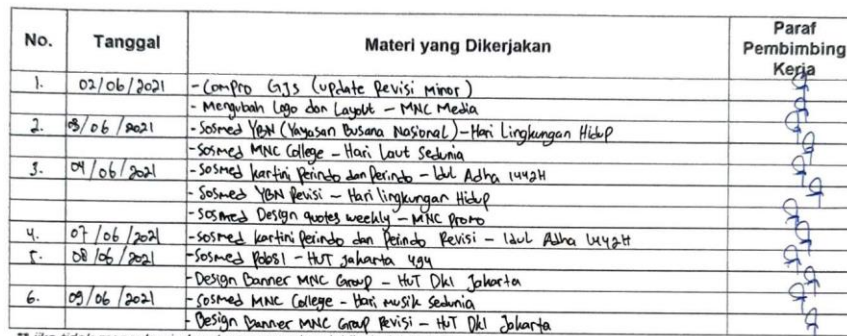 No. Tanggal Materi yang Dikerjakan Paraf Pembimbing Kerja
1. 02/06/2021 - Compro GJS (update Revisi Minor)
- Mengubah Logo dan Layout - MNC Media
2. 03/06/2021 - Sosmed YBN (Yayasan Busana Nasional) - Hari Lingkungan Hidup
- Sosmed MNC College - Hari Laut Sedunia
3. 04/06/2021 - Sosmed kartini Perindo dan Perindo - Idul Adha 1442H
- Sosmed YBN Revisi - Hari lingkungan Hidup
- Sosmed Design quotes weekly - MNC Promo
4. 07/06/2021 - Sosmed kartini Perindo dan Perindo Revisi - Idul Adha 1442H
5. 08/06/2021 - Sosmed - HUT Jakarta 494
- Design Banner MNC Group - HUT DKI Jakarta
6. 09/06/2021 - Sosmed MNC College - Hari Musik Sedunia
- Design Banner MNC Group Revisi - HUT DKI Jakarta